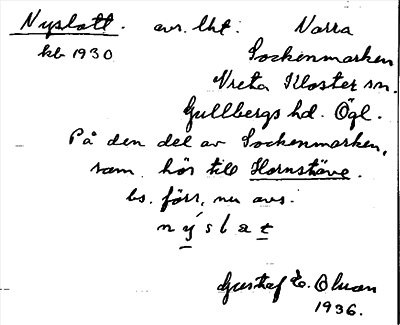 Nyslott. avs. lht. Norra
kb 1930 Sockenmarken
Vreta Kloster sn.
Gullbergs hd. Ögl.
På den del av Sockenmarken,
som hör till Hornstäve.
bs. förr, nu avs.
nýslat
Gustaf E. Olson
1936.